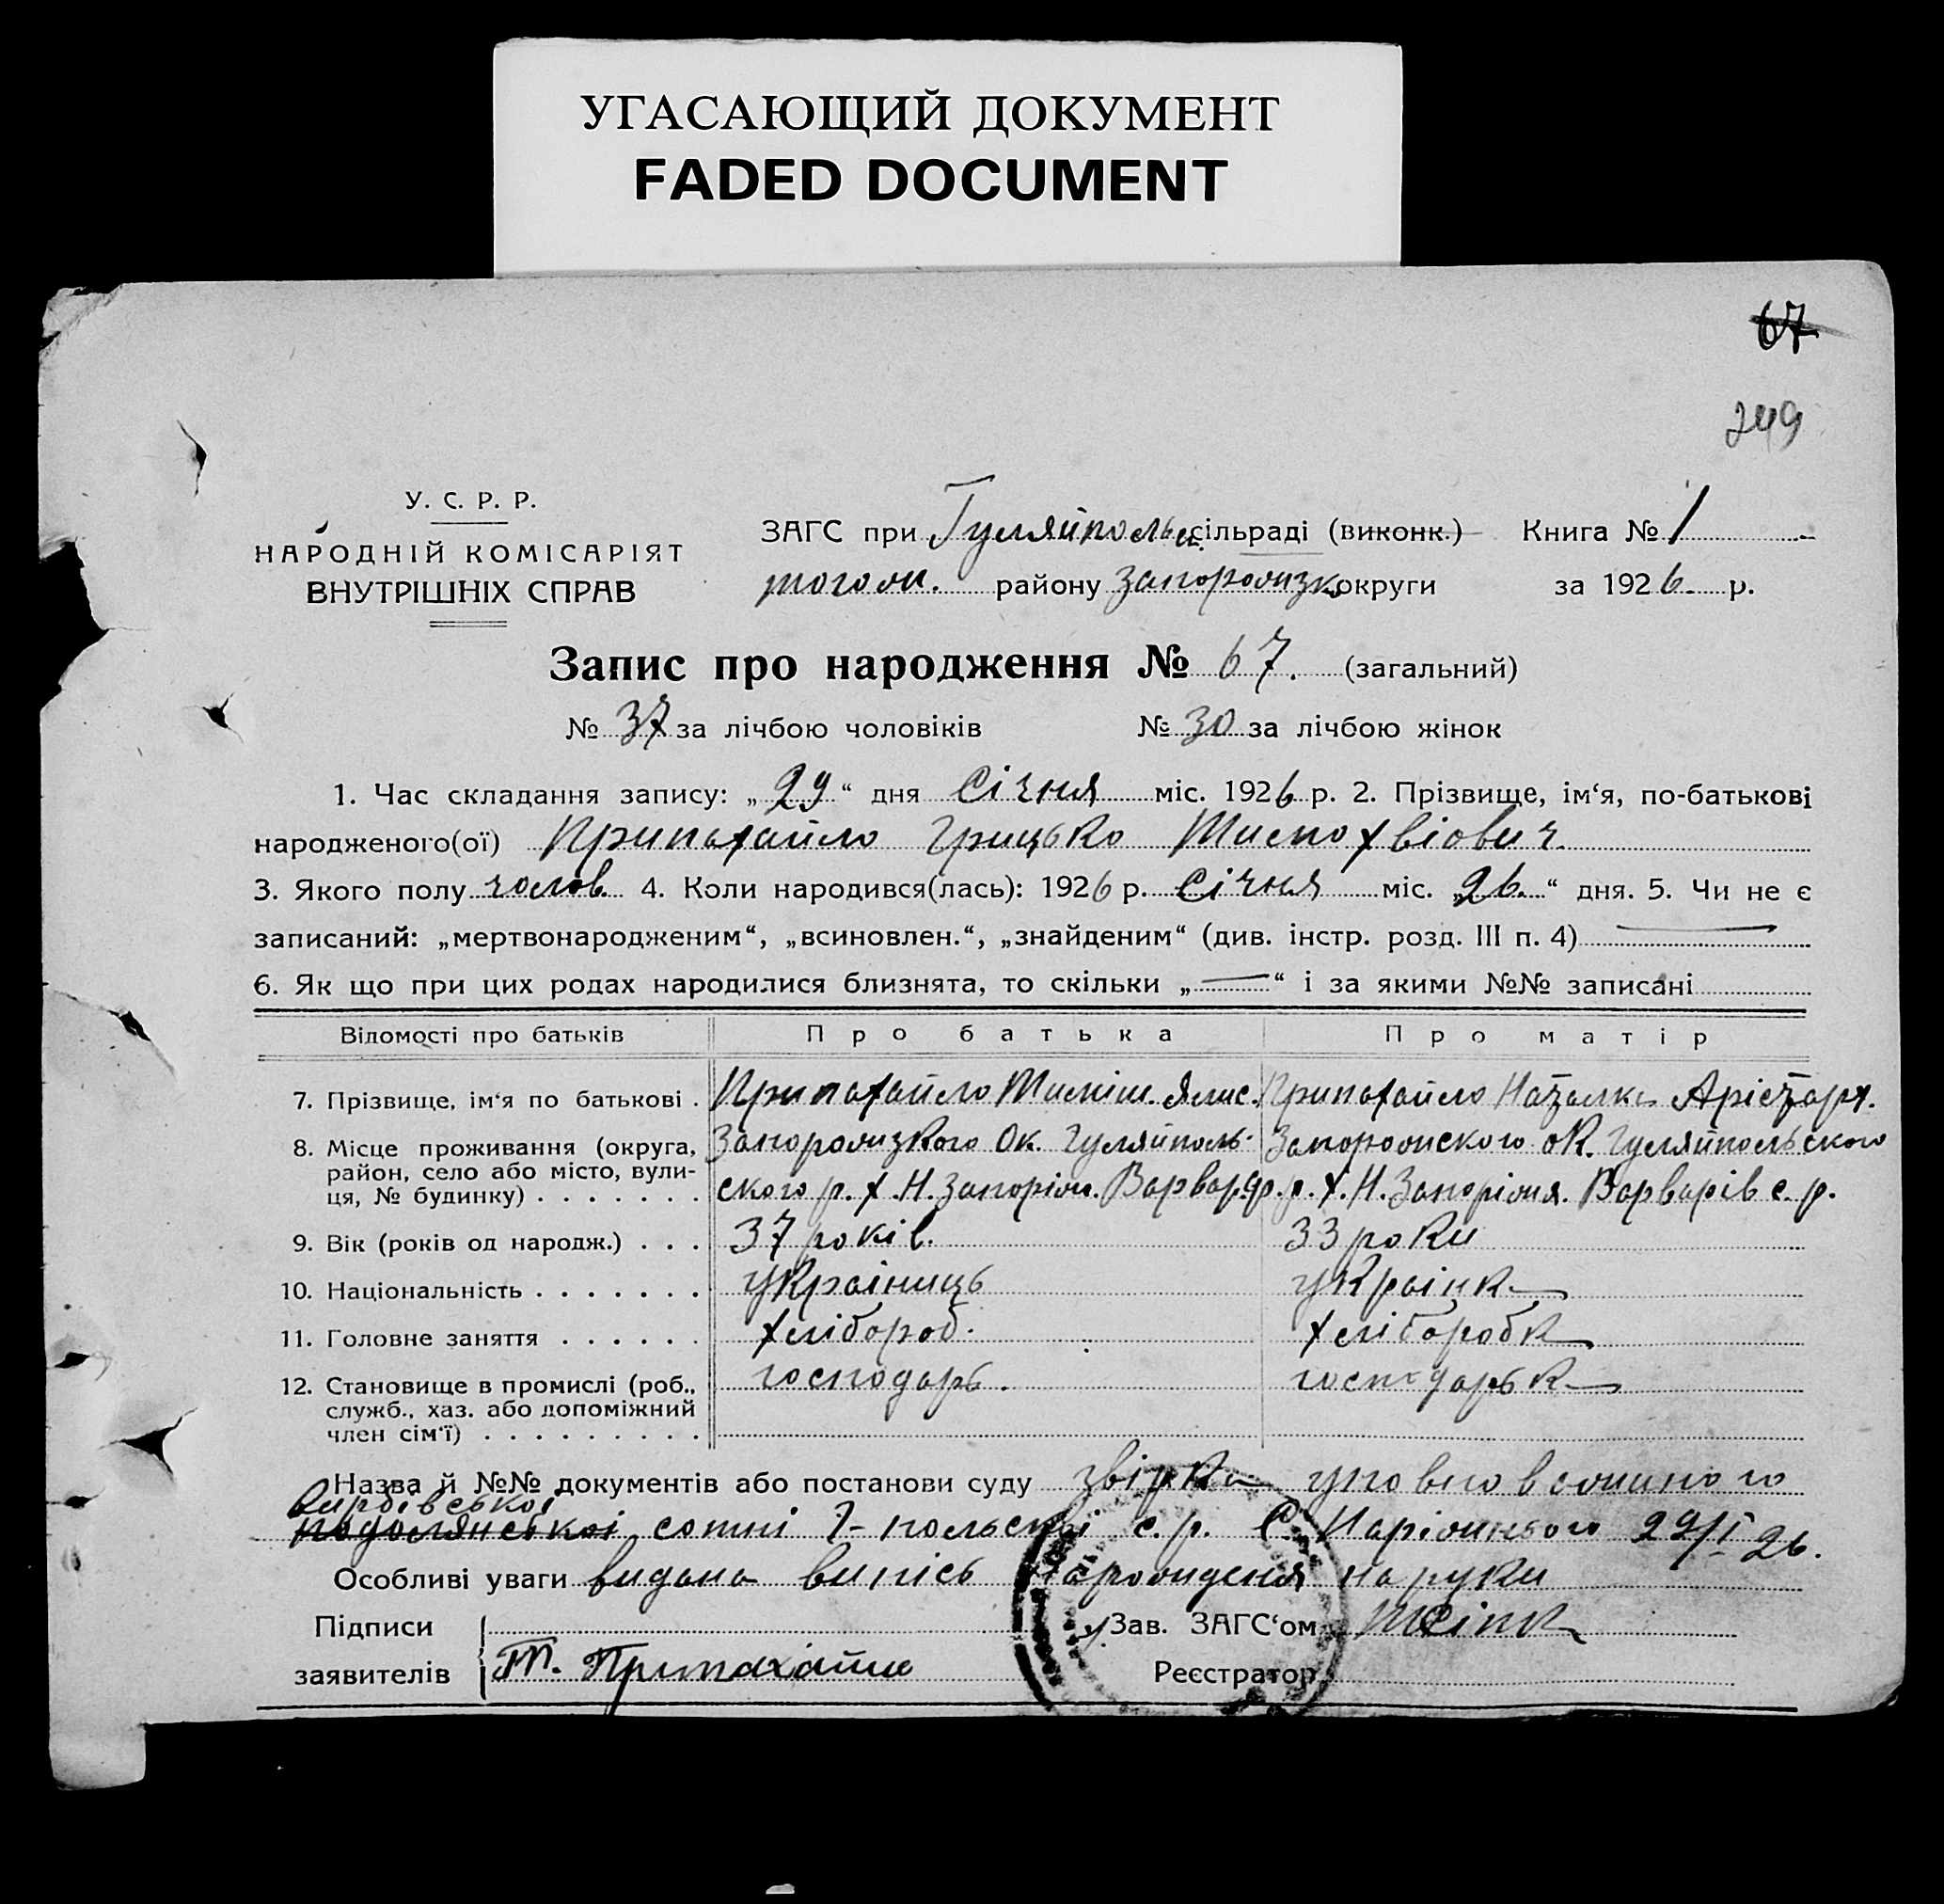 УГАСАЮЩИЙ ДОКУМЕНТ
FADED DOCUMENT
67
249
У. С. Р. Р.
НАРОДНІЙ КОМІСАРІЯТ
ВНУТРІШНІХ СПРАВ
ЗАГС при Гуляйпольс. сільраді (виконк.) Книга № 1
тогож. району Запорожизко округи за 1926. р.
Запис про народження № 67. (загальний)
№ 37 за лічбою чоловіків № 30 за лічбою жінок
1. Час складання запису: „29“ дня Січня міс. 1926 р. 2. Прізвище, ім‘я, по-батькові
народженого(ої) Припахайло Грицько Тимохвіович.
3. Якого полу чолов. 4. Коли народився(лась): 1926 р. Січня міс. „26.“ дня. 5. Чи не є
записаний: „мертвонародженим“, „всиновлен.“, „знайденим“ (див. інстр. розд. III п. 4) —
6. Як що при цих родах народилися близнята, то скільки „—“ і за якими №№ записані
Відомості про батьків Про батька Про матір
7. Прізвище, ім‘я по батькові . Припахайло Тиміш. Припахайло Наталка Арістарх.
8. Місце проживання (округа, Запорожизкого Ок. Гуляйполь- Запорожского ок. Гуляйпольского
район, село або місто, вули-
ця, № будинку) . . . . . . . ского р. х. Н. Запоріж. Варвар. р. х. Н. Запоріжя. Варварів с. р.
9. Вік (років од народж.) . . . 37 років. 33 роки
10. Національність . . . . . . . украіниць украінка
11. Головне заняття . . . . . . хлібороб. хлiборобка
12. Становище в промислі (роб., господарь. господарька
служб., хаз. або допоміжний
член сім‘ї) . . . . . . . . .
Назва й №№ документів або постанови суду звірка уповноваженого
Вербівської
подолянської сотні Г-польської с. р. 29/I 26.
Особливі уваги видана випісь народження на руки
Підписи Зав. ЗАГС‘ом
заявителів Т. Припахайло Реєстратор